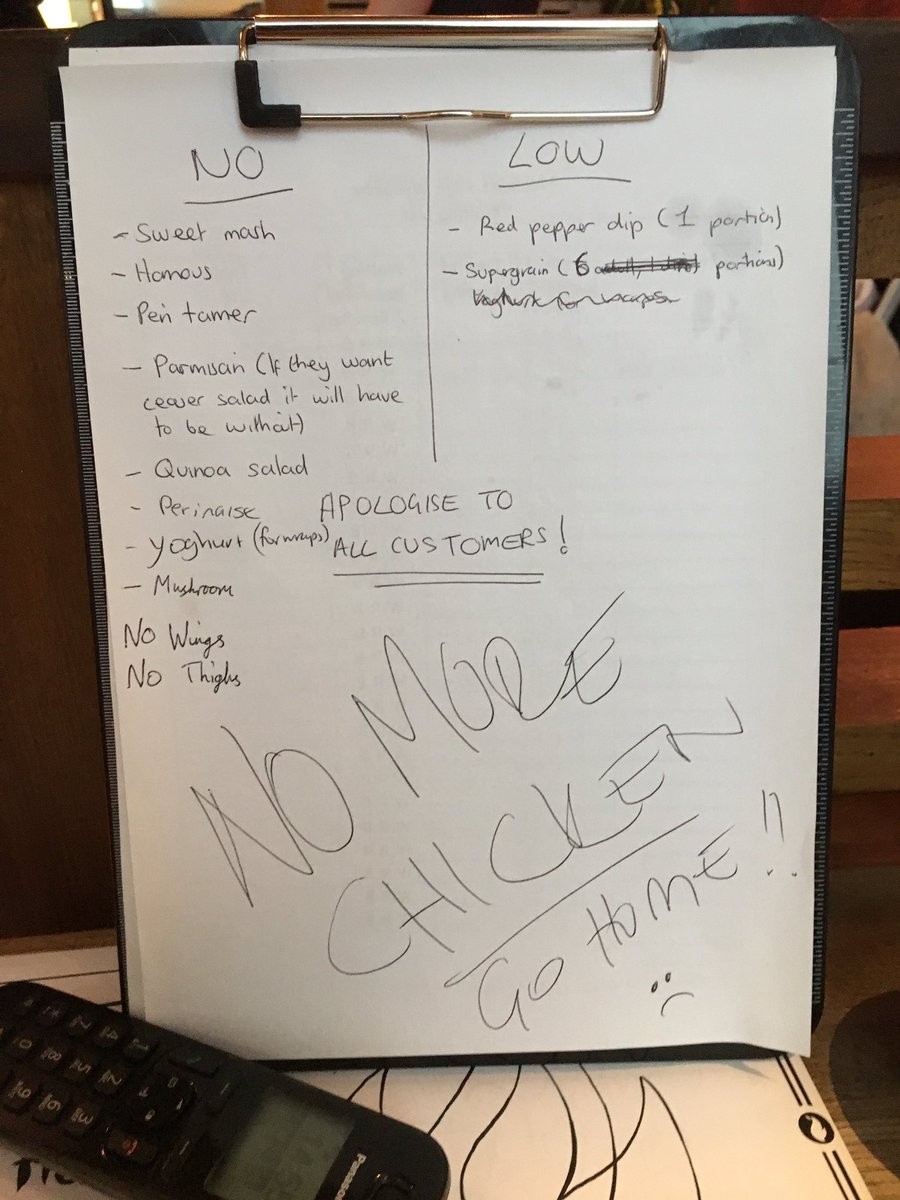 NO
- Sweet mash
- Homous
- Peri tamer
- Parmisan (If they want
ceaser salad it will have
to be without)
- Quinoa salad
- Perinaise
- Yoghurt (for wraps)
- Mushroom
No Wings
No Thighs
LOW
- Red pepper dip (1 portion)
- Supergrain (6 portions)
Yoghurt for wraps
APOLOGISE TO
ALL CUSTOMERS!
NO MORE
CHICKEN
GO HOME!!
:(
Panasonic